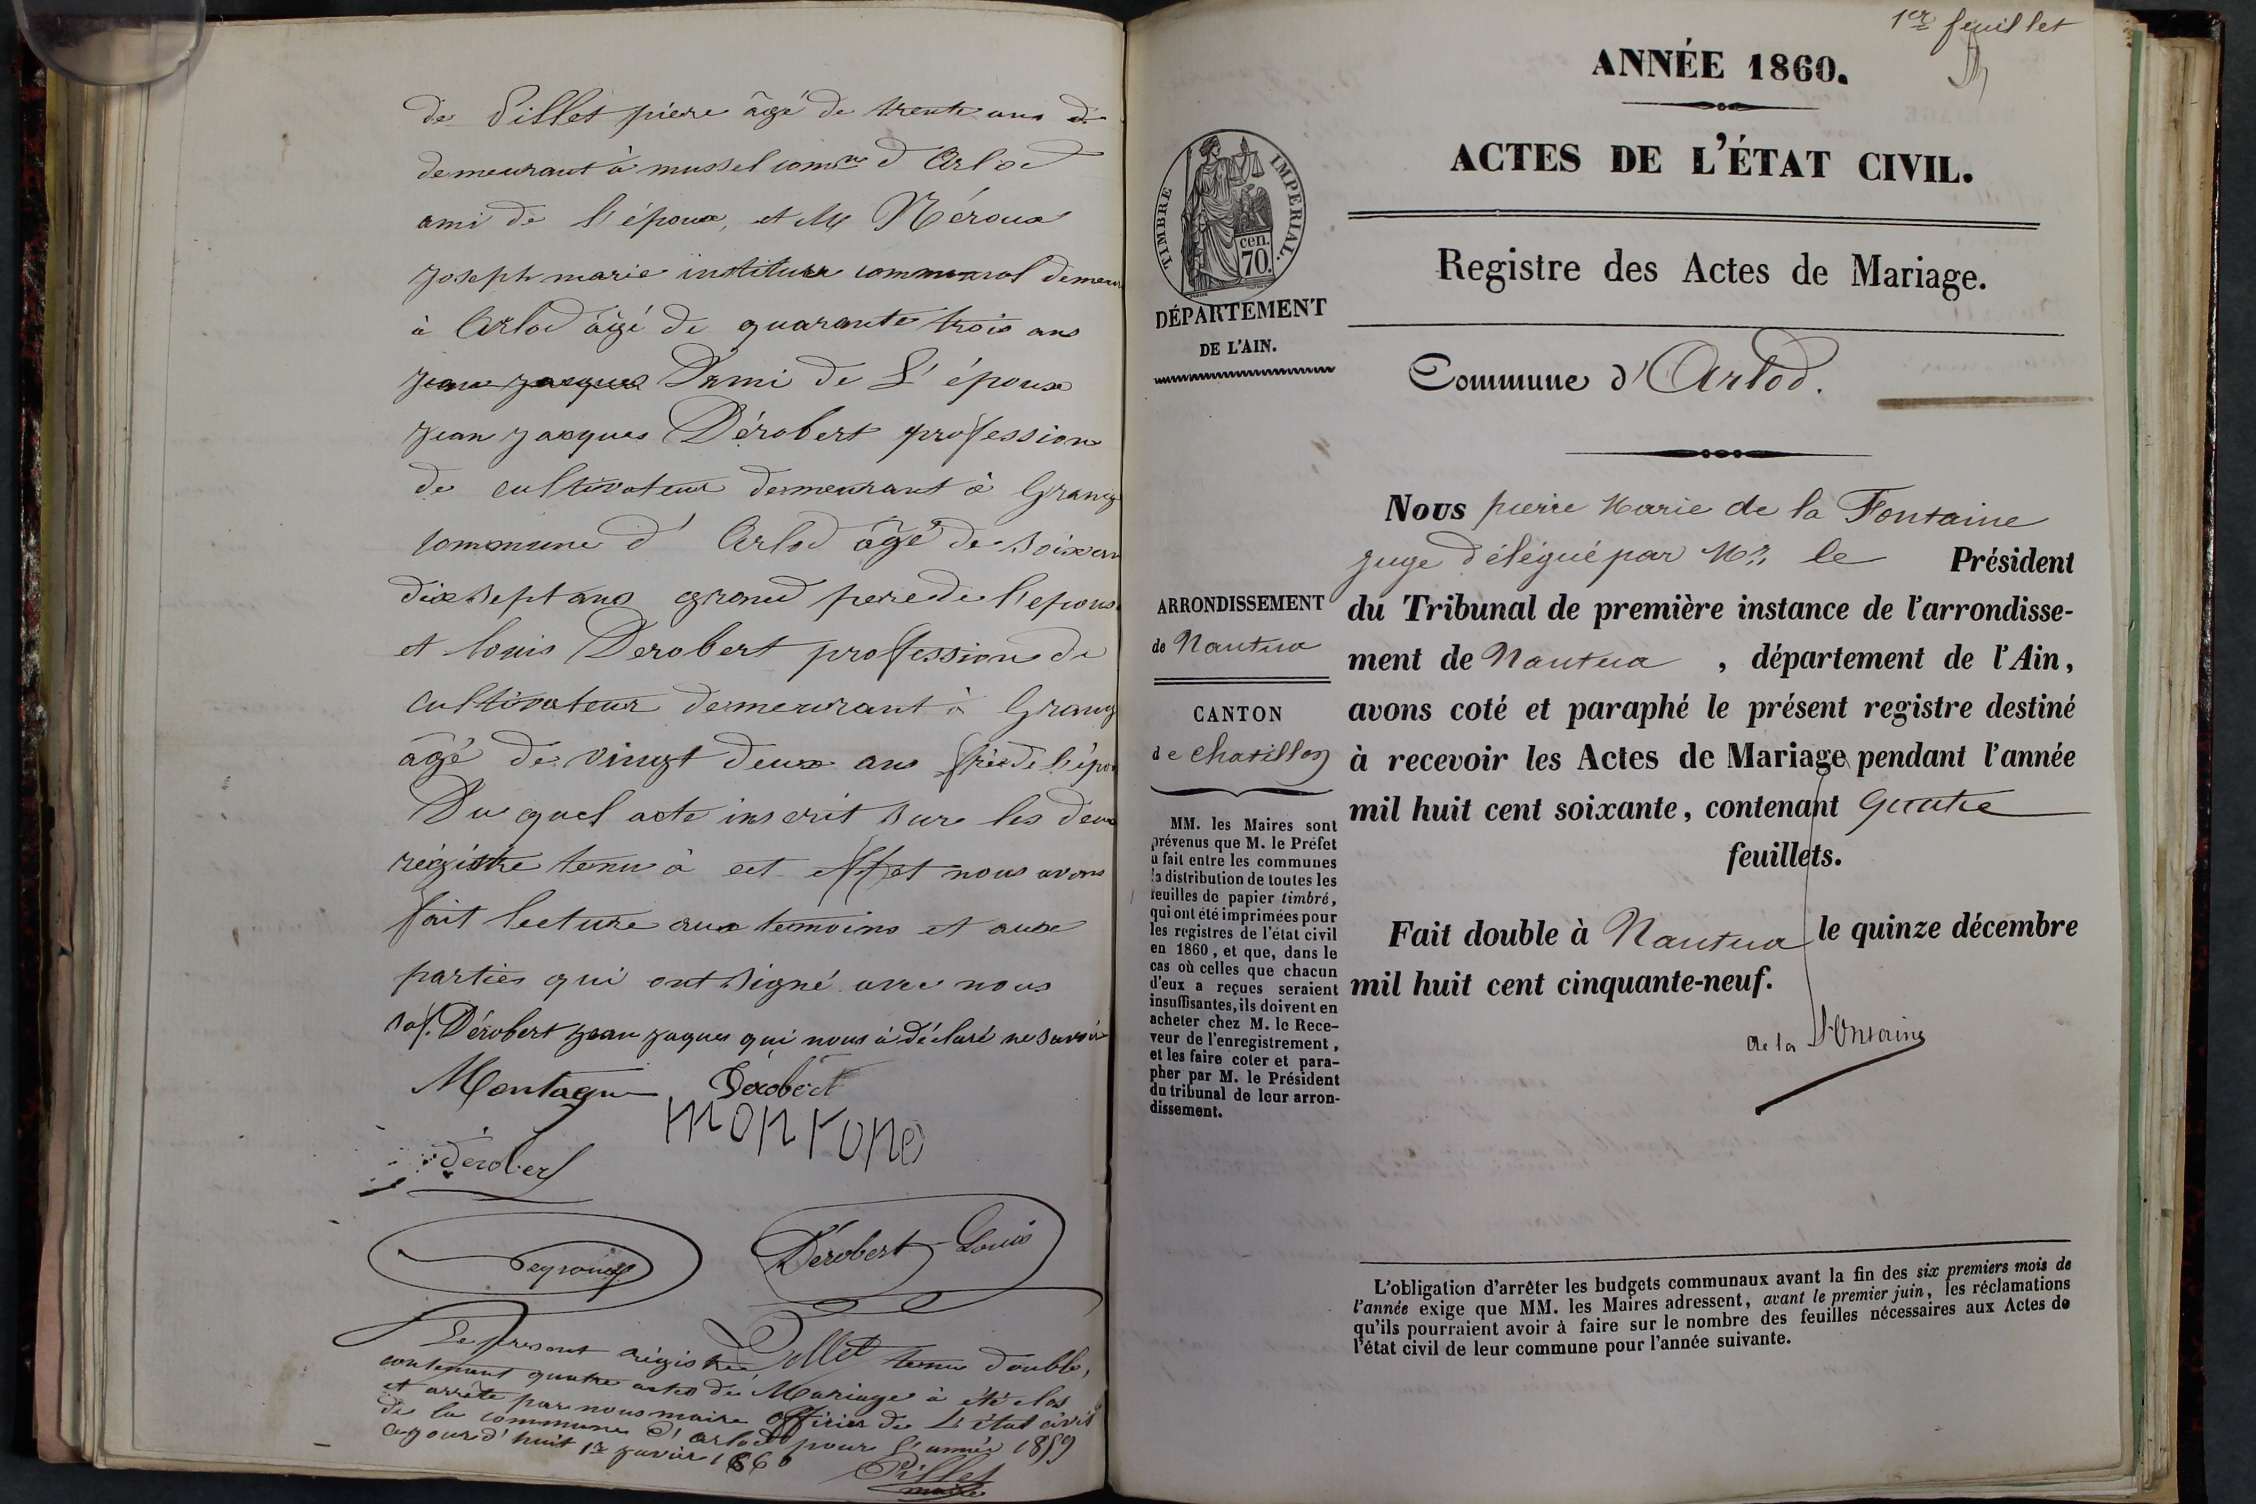 de Pillet pière âgé de trente ans d
demeurant à mussel comne d'Arlod
ami de l'époux, et M Néroux
joseph marie instituteur communal demeur
à Arlod âgé de quarante trois ans
jean jacques D'ami de L'époux
jean jacques Dérobert profession
de cultivateur demeurant à Grang
commune d'Arlod âgé de soixan
dix sept ans grand pere de l'epous
et louis Derobert profession de
cultivateur demeurant à Grang
âgé de vingt deux ans frère de l'épou
Du quel acte inscrit sur les deux
régistre tenu à cet effet nous avons
fait lecture aux temoins et aux
parties qui ont signé avec nous
sof. Dérobert jean jaques qui nous à déclaré ne savoir
Montagn Dérobert
monrone
dérobert
Dérobert Louis
Pillet
Le present régistre tenu double,
contenant quatre actes de Mariage à été clos
et arrête par nous maire officier de L'état civil
de la commune d'arlod pour l'année 1859
1er janvier 1860
Pillet
maire
1er feuillet
ANNÉE 1860.
ACTES DE L'ÉTAT CIVIL.
TIMBRE IMPERIAL.
cen.
70.
Registre des Actes de Mariage.
DÉPARTEMENT
DE L'AIN.
Commune d'Arlod.
Nous pierre Marie de la Fontaine
juge délégué par Mr le Président
du Tribunal de première instance de l'arrondisse-
ment de Nantua, département de l'Ain,
avons coté et paraphé le présent registre destiné
à recevoir les Actes de Mariage pendant l'année
mil huit cent soixante, contenant quatre
feuillets.
Fait double à Nantua le quinze décembre
mil huit cent cinquante-neuf.
de la Fontaine
ARRONDISSEMENT
de Nantua
CANTON
de Chatillon
MM. les Maires sont
prévenus que M. le Préfet
a fait entre les communes
la distribution de toutes les
feuilles de papier timbré,
qui ont été imprimées pour
les registres de l'état civil
en 1860, et que, dans le
cas où celles que chacun
d'eux a reçues seraient
insuffisantes, ils doivent en
acheter chez M. le Rece-
veur de l'enregistrement,
et les faire coter et para-
pher par M. le Président
du tribunal de leur arron-
dissement.
L'obligation d'arrêter les budgets communaux avant la fin des six premiers mois de
l'année exige que MM. les Maires adressent, avant le premier juin, les réclamations
qu'ils pourraient avoir à faire sur le nombre des feuilles nécessaires aux Actes de
l'état civil de leur commune pour l'année suivante.